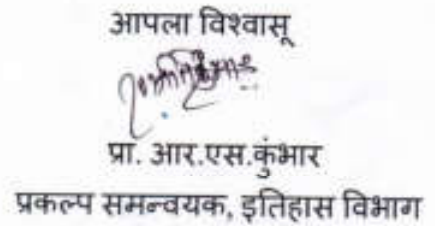 आपला विश्वासू
प्रा. आर.एस.कुंभार
प्रकल्प समन्वयक, इतिहास विभाग